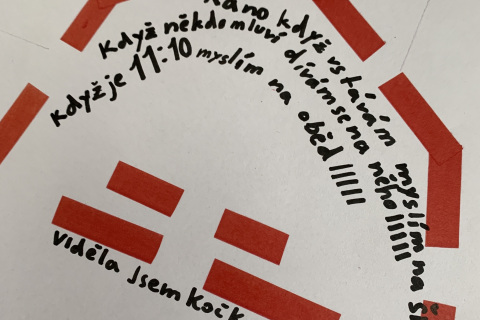 když vstávám myslím na
když někdo mluví dívám se na něho IIIII
když je 11:10 myslím na oběd IIIII
viděla jsem